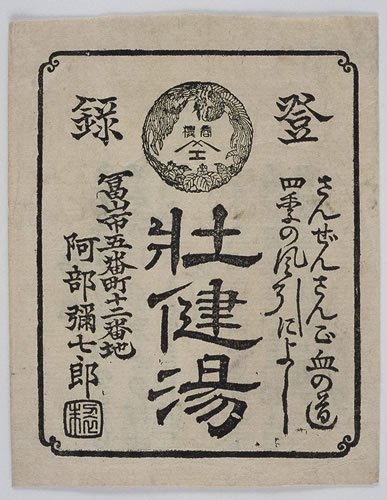 登録
商標
さんぜんさんご血の道
四季の風引によし
壮健湯
富山市五番町十二番地
阿部彌七郎